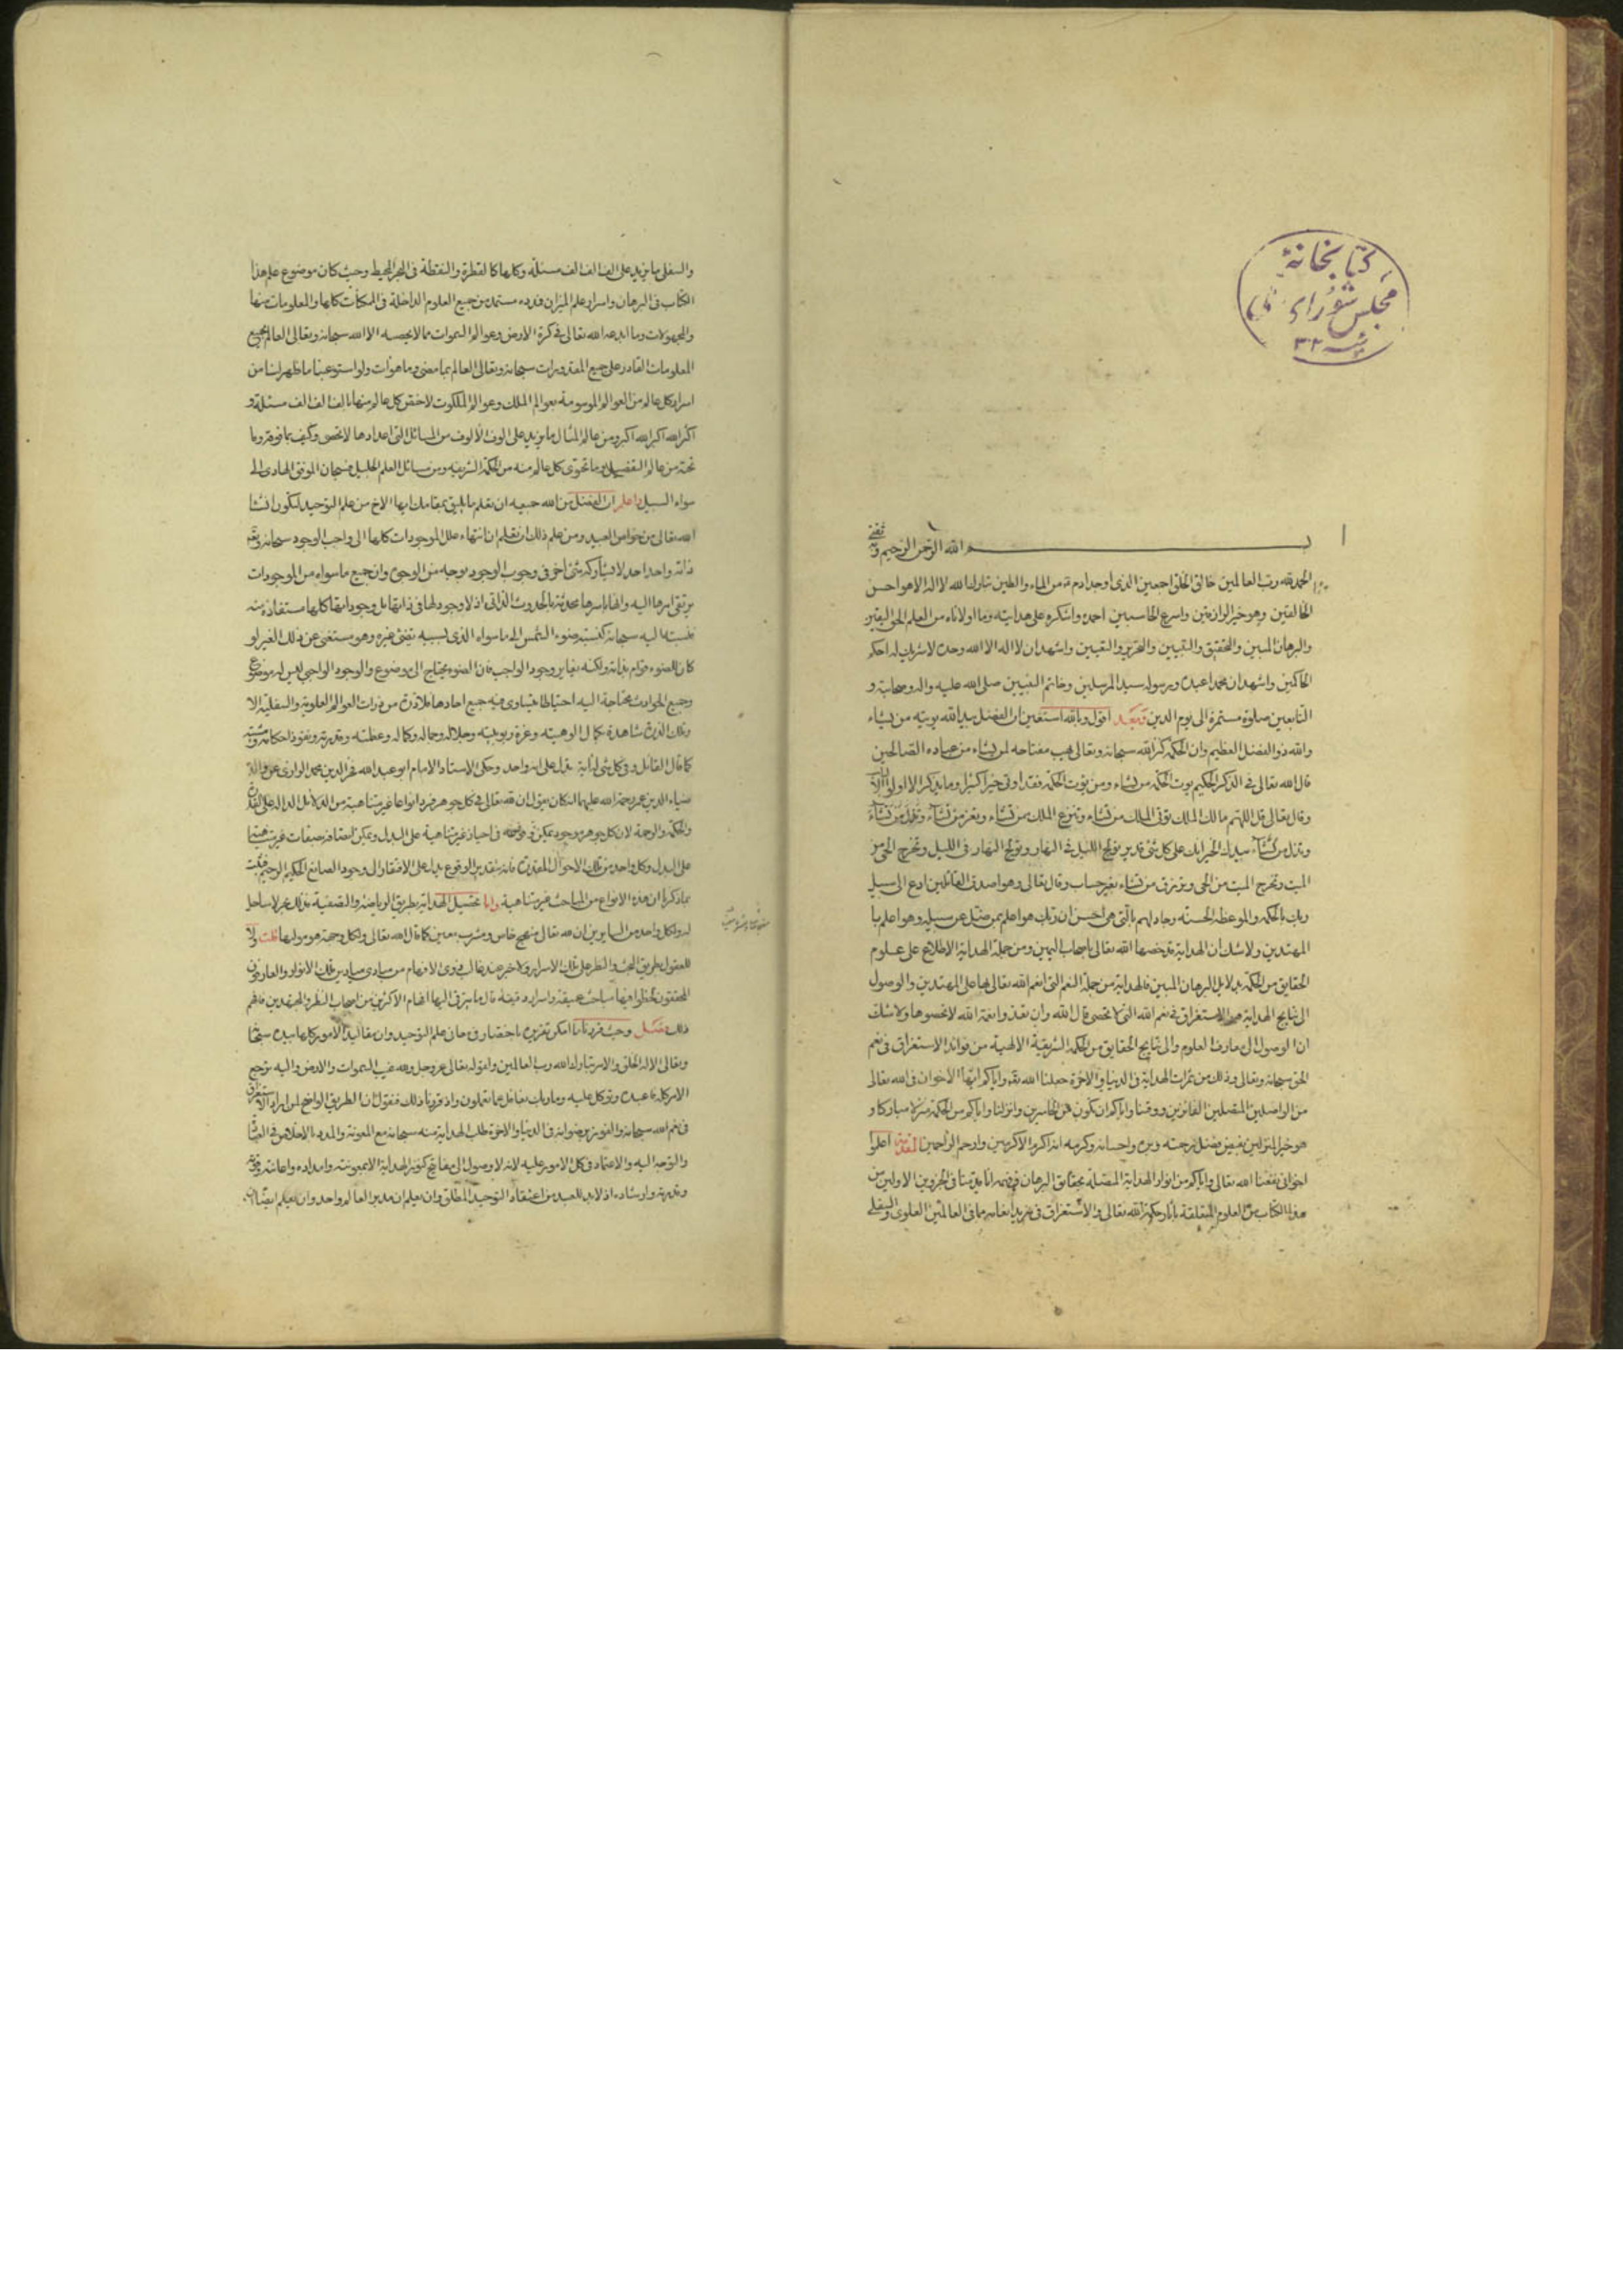 كتابخانهٔ
مجلس شورای ملی
بسم الله الرحمن الرحيم وبه ثقتي
الحمد لله رب العالمين خالق الخلق اجمعين الذي اوجد ادم من الماء والطين تبارك الله لا اله الا هو احسن
الخالقين وهو خير الرازقين واسرع الحاسبين احمده واشكره على هدايته وما اولاناه من العلم الحق اليقين
والبرهان المبين والتحقيق والتبيين والتحرير واليقين واشهد ان لا اله الا الله وحده لا شريك له احكم
الحاكمين واشهد ان محمدا عبده ورسوله سيد المرسلين وخاتم النبيين صلى الله عليه واله وصحابته و
التابعين صلوة مستمرة الى يوم الدين وبعد اقول وبالله استعين ان الفضل بيد الله يوتيه من يشاء
والله ذو الفضل العظيم وان الحكمة كنز الله سبحانه وتعالى يهب مفتاحه لمن يشاء من عباده الصالحين
قال الله تعالى في الذكر الحكيم يوت الحكمة من يشاء ومن يوت الحكمة فقد اوتي خيرا كثيرا وما يذكر الا اولوا الالباب
وقال تعالى قل اللهم مالك الملك توتي الملك من تشاء وتنزع الملك ممن تشاء وتعز من تشاء وتذل من تشاء
وتذل من تشاء بيدك الخير انك على كل شئ قدير تولج الليل في النهار وتولج النهار في الليل وتخرج الحي من
الميت وتخرج الميت من الحي وترزق من تشاء بغير حساب وقال تعالى وهو اصدق القائلين ادع الى سبيل
ربك بالحكمة والموعظة الحسنة وجادلهم بالتي هي احسن ان ربك هو اعلم بمن ضل عن سبيله وهو اعلم با
لمهتدين ولا شك ان الهداية قد خصها الله تعالى باصحاب اليمين ومن جملة الهداية الاطلاع على علوم
الحقايق من الحكمة بدلايل البرهان المبين فالهداية من جملة النعم التي انعم الله تعالى بها على المهتدين والوصول
الى نتايج الهداية هو الاستغراق في نعم الله التي لا تحصى قال الله وان تعدوا نعمة الله لا تحصوها ولا شك
ان الوصول الى معارف العلوم والى نتايج الحقايق من الحكمة الشريفة الالهية من فوائد الاستغراق في نعم
الحق سبحانه وتعالى وذلك من ثمرات الهداية في الدنيا والاخرة جعلنا الله تعالى واياكم ايها الاخوان في الله تعالى
من الواصلين المفضلين الفائزين ووقنا واياكم ان نكون من الخاسرين وانزلنا واياكم من الحكمة منزلا مباركا و
هو خير المنزلين بفيض فضل رحمته وبره واحسانه وكرمه انه اكرم الاكرمين وارحم الراحمين المقدمة اعلموا
اخواني نفعنا الله تعالى واياكم من انوار الهداية المتصلة بحقائق البرهان انا قدمنا في الجزوين الاولين من
هذا الكتاب من العلوم المتعلقة باثار حكمة الله تعالى والاستغراق في مزيد انعامه ما في العالمين العلوي والسفلي
والسفلي ما يزيد على الف الف الف مسئلة وكلها كالقطرة والنقطة في البحر المحيط وحيث كان موضوع علم هذا
الكتاب في البرهان واسرار علم الميزان فمدده مستمد من جميع العلوم الداخلة في الممكنات كلها والمعلومات منها
والمجهولات وما ابدعه الله تعالى في كرة الارض وعوالم السموات مما لا يحصيه الا الله سبحانه وتعالى العالم بجميع
المعلومات القادر على جميع المقدورات سبحانه وتعالى العالم بما مضى وما هو ات ولو استوعبنا ما ظهر لنا من
اسرار كل عالم من العوالم الموسومة بعوالم الملك وعوالم الملكوت لاختص كل عالم منها بالف الف الف مسئلة و
اكثر الله اكبر الله اكبر ومن عالم المثال ما يزيد على الوف الالوف من المسائل التي اعدادها لا تحصى وكيف بما فوقه وما
تحته من عالم التفصيل وما تحوى كل عالم منه من الحكمة الشريفة ومن مسائل العلم الجليل فسبحان الموفق الهادي الى
سواء السبيل واعلم ان الفضل من الله جميعه ان تعلم ما يليق بمقامك ايها الاخ من علم التوحيد لتكون ان شا
الله تعالى من خواص العبيد ومن علم ذلك ان تعلم ان انتهاء علل الموجودات كلها الى واجب الوجود سبحانه وتعالى
ذاته واحد احد لا يشاركه شئ اخر في وجوب الوجود بوجه من الوجوه وان جميع ما سواه من الموجودات
يرتقي امرها اليه وانها باسرها محدثة بالحدوث الذاتي اذ لا وجود لها في ذاتها بل وجوداتها كلها مستفاذة منه
فنسبتها اليه سبحانه كنسبة ضوء الشمس الى ما سواه الذي بسببه تضئ غيره وهو مستغنى عن ذلك الغير لو
كان للضوء قوام بذاته ولكنه يغاير وجود الواجب فان الضوء محتاج الى موضوع والوجود الواجبي ليس له موضوع
وجميع الحوادث محتاجة اليه احتياطا يتساوى فيه جميع احادها فلا ذرة من ذرات العوالم العلوية والسفلية الا
وتلك الذرة شاهدة بكمال الوهيته وعزة ربوبيته وجلاله وجماله وكماله وعظمته وقدرته ونفوذ احكامه ومشيته
كما قال القائل وفي كل شئ له اية تدل على انه واحد وحكى الاستاد الامام ابو عبد الله فخر الدين محمد الرازي عن والده
ضياء الدين عمر رحمة الله عليهما انه كان يقول ان لله تعالى في كل جوهر فرد انواعا غير متناهية من الدلائل الدالة على القدرة
والحكمة والرحمة لان كل جوهر وجود يمكن وقوعه في احياز غير متناهية على البدل ويمكن اتصافه بصفات غير متناهية
على البدل وكل واحد من تلك الاحوال المقدرة فانه بتقدير الوقوع يدل على الافتقار الى وجود الصانع الحكيم الرحيم فثبت
بما ذكرنا ان هذه الانواع من المباحث غير متناهية واما تحصيل الهداية بطريق الرياضة والتصفية فذلك بحر لا ساحل
له ولكل واحد من السايرين الى الله تعالى منهج خاص ومشرب معين كما قال الله تعالى ولكل وجهة هو موليها قلت ولا
للعقول بطريق البحث والنظر على تلك الاسرار ولا خبر عند غالب ذوى الافهام من مبادى ميادين تلك الانوار والعارفون
المحققون لحظوا فيها مباحث عميقة واسرار دقيقة قل ما يترقى اليها افهام الاكثرين من اصحاب النظر والمجتهدين فافهم
ذلك فصل وحيث قررنا ما امكن تقريره باختصار في علم التوحيد وان مقاليد الامور كلها بيده سبحانه
وتعالى الا له الخلق والامر تبارك الله رب العالمين ولقوله تعالى عز وجل ولله غيب السموات والارض واليه يرجع
الامر كله فاعبده وتوكل عليه وما ربك بغافل عما تعملون واذ قررنا ذلك فنقول ان الطريق الواضح لمن اراد الاستغراق
في نعم الله سبحانه والفوز برضوانه في الدنيا والاخرة طلب الهداية منه سبحانه مع المعونة والمدد الاخلاص في العبادة
والتوجه اليه والاعتماد في كل الامور عليه لانه لا وصول الى مفاتيح كنوز الهداية الا بمعونته وامداده واعانته وقوته
وقدرته وارشاده اذ لا بد للعبد من اعتقاد التوحيد المطلق وان يعلم ان مدبر العالم واحد وان يعلم ايضا ان